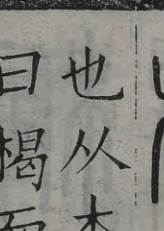 也从木
曰楬而